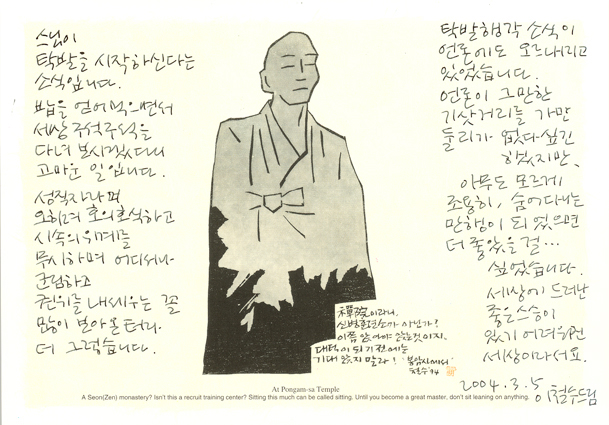 스님이
탁발을 시작하신다는
소식입니다.
밥을 얻어먹으면서
세상 구석구석을
다녀 보시겠다니
고마운 일입니다.
성직자라며
오히려 호의호식하고
시속의 우매를
무시하며 어디서나
군림하고
권위를 내세우는 꼴
많이 보아온 터라
더 그렇습니다.
탁발행각 소식이
언론에도 오르내리고
있었습니다.
언론이 그만한
기삿거리를 가만
둘리가 없다 싶긴
하겠지만,
아무도 모르게
조용히, 숨어다니는
만행이 되었으면
더 좋았을 걸...
싶었습니다.
세상에 드러난
좋은 스승이
있기 어려워진
세상이라서요.
2004. 3. 5 이철수 드림
禪院이라니,
신병훈련소가 아닌가?
이쯤 앉아야 앉는 것이지.
대덕이 되기 전에는
기대 앉지 말라! '봉암사에서'
철수 '94
At Pongam-sa Temple
A Seon(Zen) monastery? Isn't this a recruit training center? Sitting this much can be called sitting. Until you become a great master, don't sit leaning on anything.